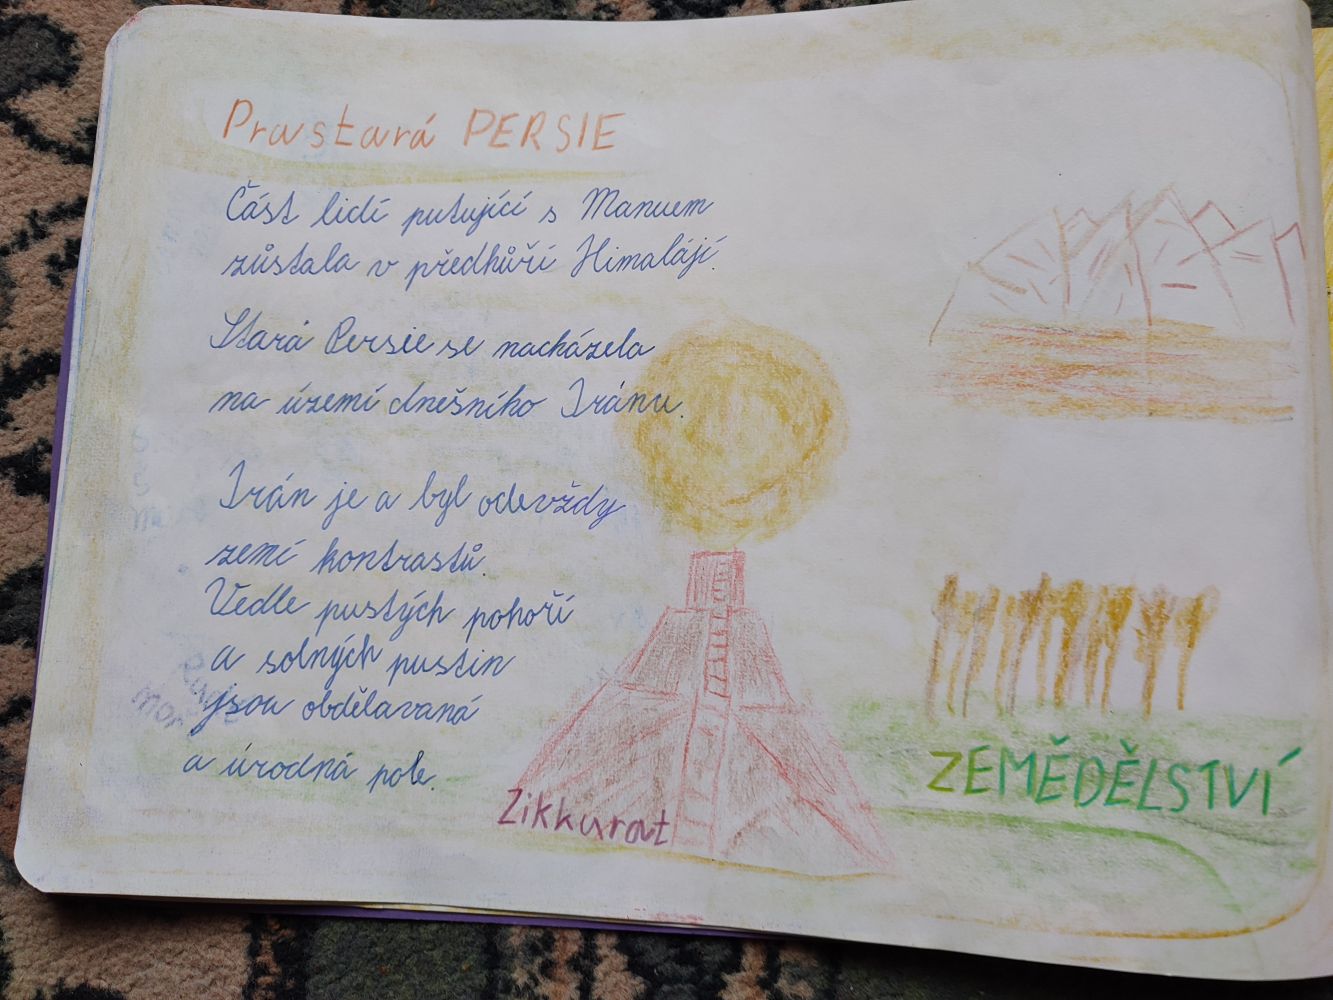 Prastará PERSIE
Část lidí putující s Manuem
zůstala v předhůří Himalájí.
Stará Persie se nacházela
na území dnešního Iránu.
Irán je a byl odevždy
zemí kontrastů.
Vedle pustých pohoří
a solných pustin
jsou obdělavaná
a úrodná pole.
Zikkurat
ZEMĚDĚLSTVÍ